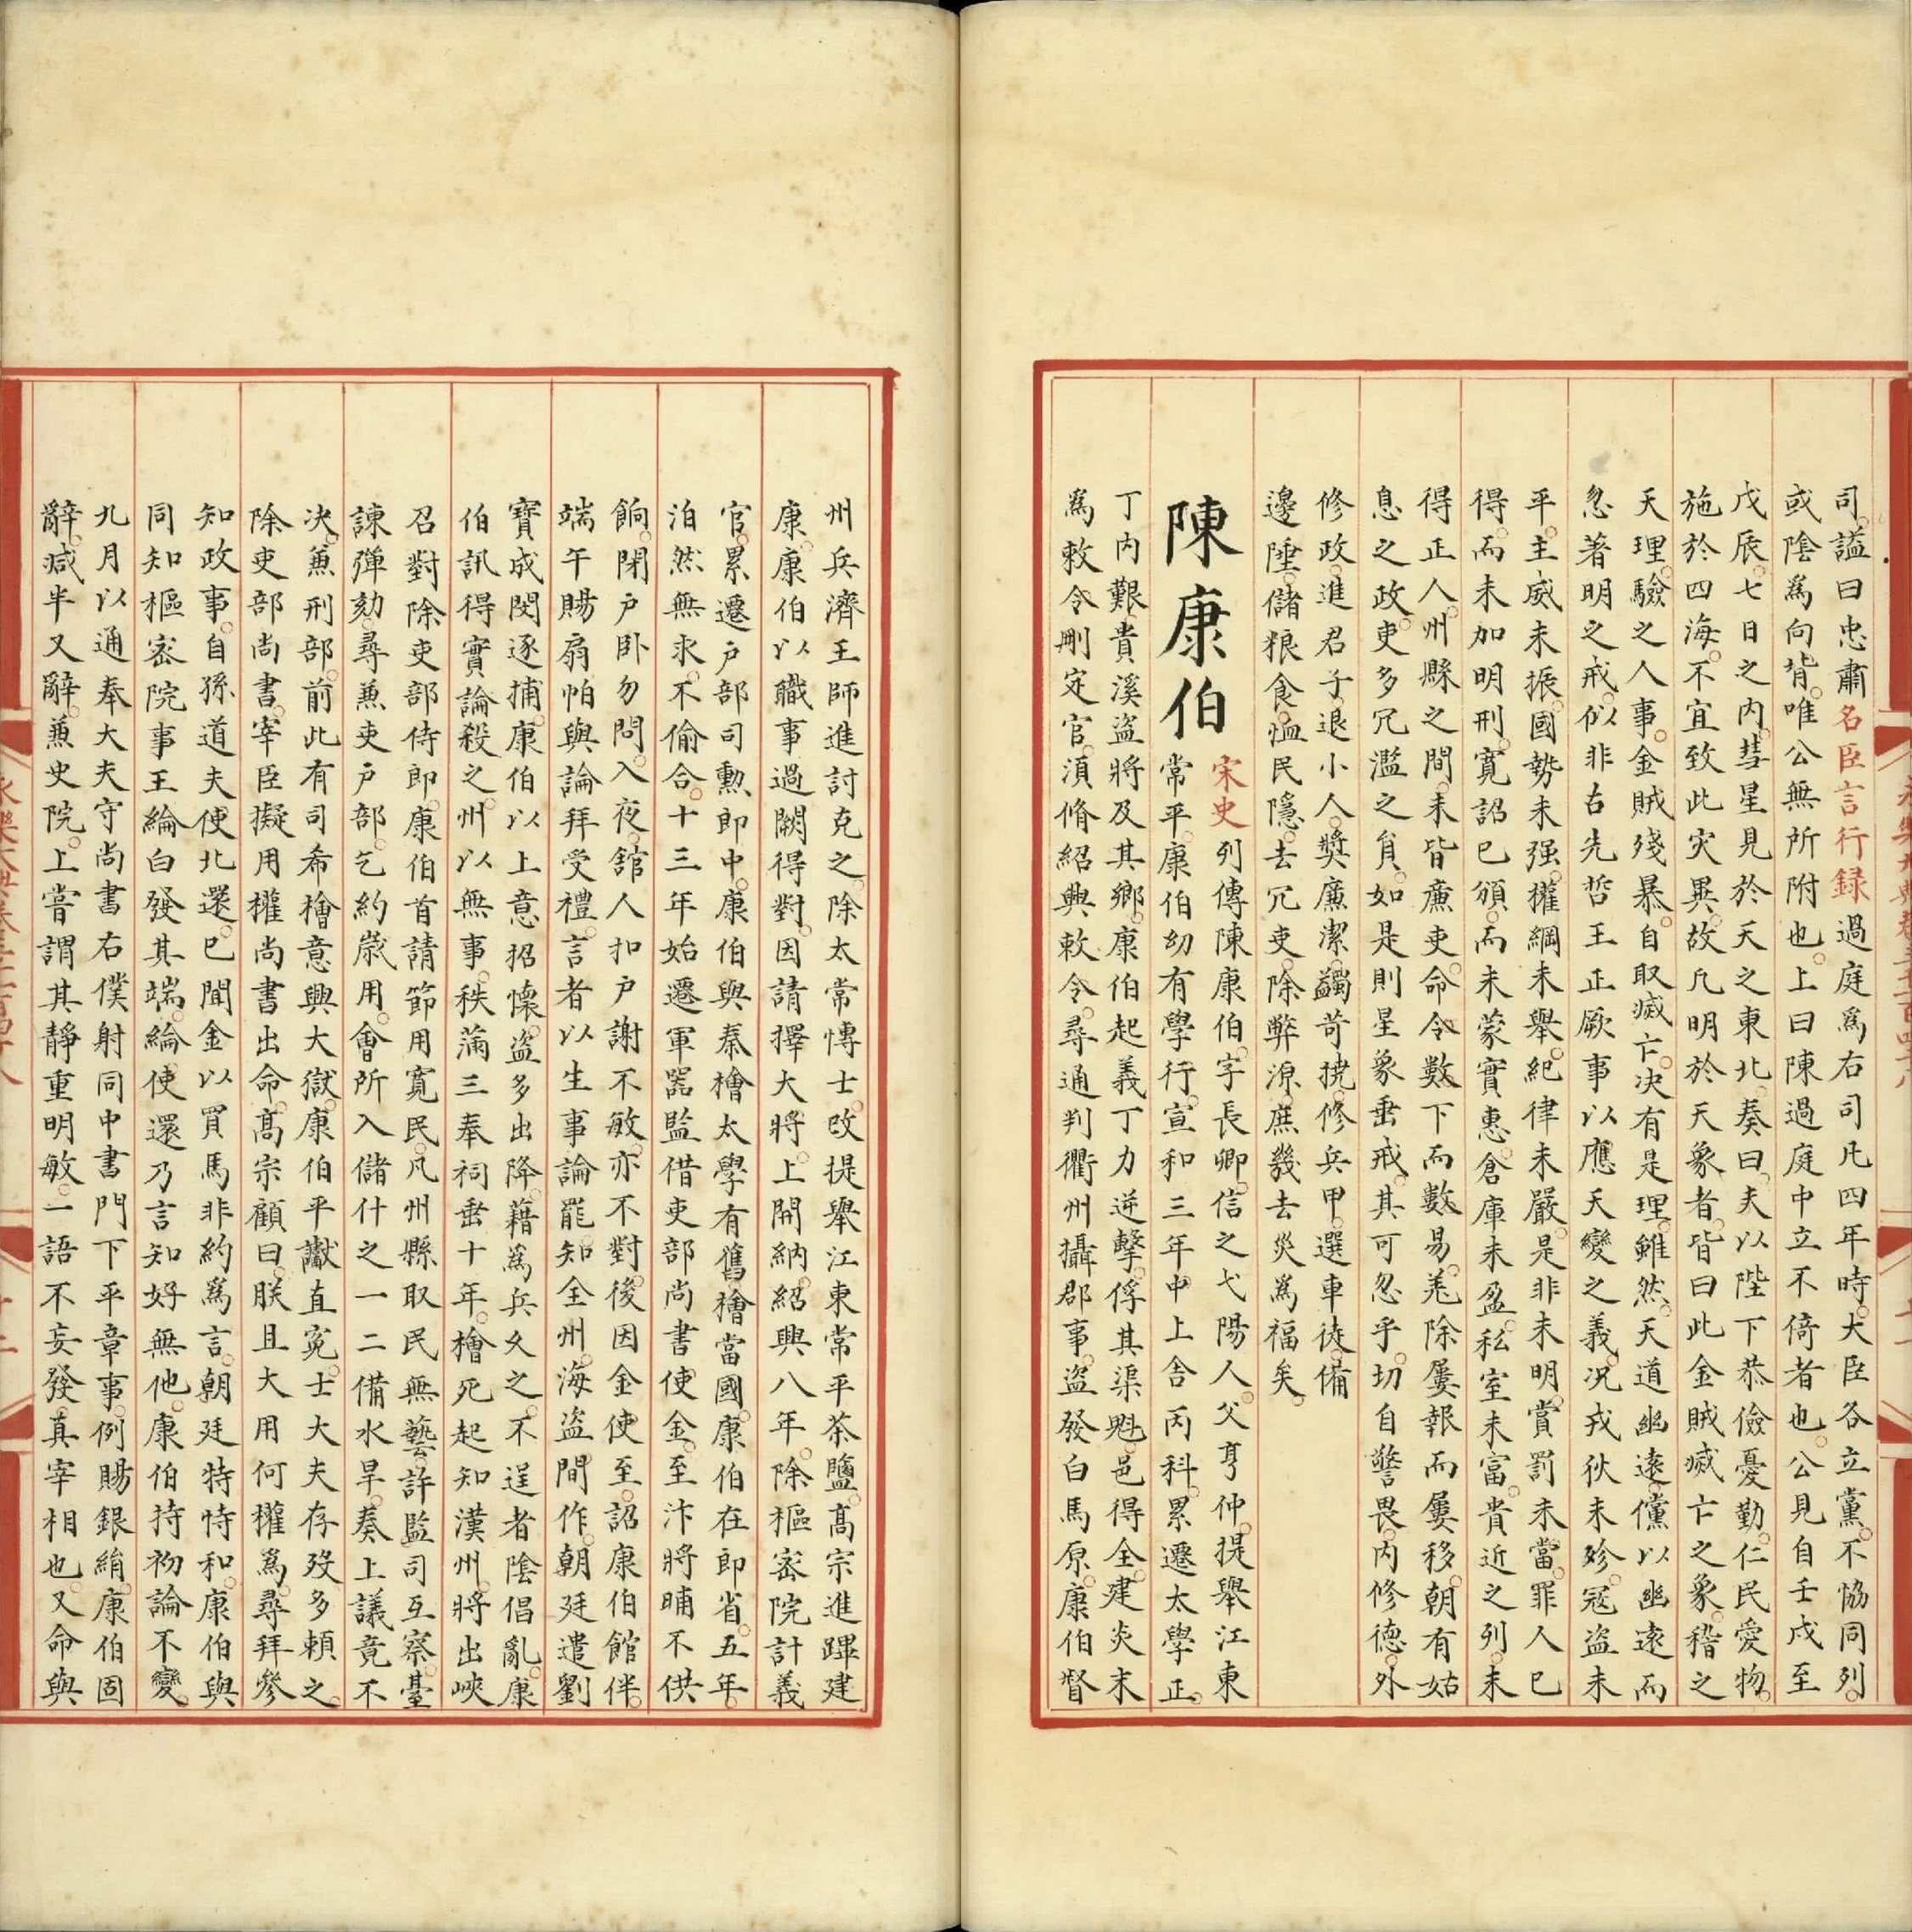 司諡曰忠肅名臣言行録過庭爲右司凡四年時大臣各立黨不協同列
或陰爲向背唯公無所附也上曰陳過庭中立不倚者也公見自壬戌至
戊辰七日之內彗星見於天之東北奏曰夫以陛下恭儉憂勤仁民愛物
施於四海不宜致此灾異故凡明於天象者皆曰此金賊滅亡之象稽之
天理驗之人事金賊殘暴自取滅亡决有是理雖然天道幽遠儻以幽遠而
忽著明之戒似非古先哲王正厥事以應天變之義况戎狄未殄冦盗未
平主威未振國勢未强權綱未舉紀律未嚴是非未明賞罰未當罪人已
得而未加明刑寛詔已頒而未蒙實惠倉庫未盈私室未富貴近之列未
得正人州縣之間未皆亷吏命令數下而數易羗除屢報而屢移朝有姑
息之政吏多冗濫之負如是則星象垂戒其可忽乎切自警畏内修德外
修政進君子退小人奬亷潔蠲苛撓修兵甲選車徒備
邊陲儲粮食恤民隱去冗吏除弊源庶幾去災爲福矣
陳康伯宋史列傳陳康伯字長卿信之弋陽人父亨仲提舉江東
常平康伯幼有學行宣和三年中上舍丙科累遷太學正
丁内艱貴溪盗將及其鄉康伯起義丁力逆擊俘其渠魁邑得全建炎末
爲敕令刪定官湏脩紹興敕令尋通判衢州攝郡事盗發白馬原康伯督
州兵濟王師進討克之除太常博士改提舉江東常平茶鹽高宗進蹕建
康康伯以職事過闕得對因請擇大將上開納紹興八年除樞密院計義
官累遷户部司勲郎中康伯與秦檜太學有舊檜當國康伯在郎省五年
泊然無求不偷合十三年始遷軍器監借吏部尚書使金至汴將晡不供
餉閉户卧勿問入夜館人扣户謝不敏亦不對後因金使至詔康伯館伴
端午賜扇帕與論拜受禮言者以生事論罷知全州海盗間作朝廷遣劉
寶成閔逐捕康伯以上意招懷盗多出降藉爲兵久之不逞者陰倡亂康
伯訊得實論殺之州以無事秩滿三奉祠垂十年檜死起知漢州將出峽
召對除吏部侍郎康伯首請節用寬民凡州縣取民無藝許監司互察臺
諫彈劾尋兼吏户部乞約歲用會所入儲什之一二備水旱奏上議竟不
决兼刑部前此有司希檜意興大獄康伯平讞直寃士大夫存歿多頼之
除吏部尚書宰臣擬用權尚書出命高宗顧曰朕且大用何權爲尋拜叅
知政事自孫道夫使北還已聞金以買馬非約爲言朝廷特恃和康伯與
同知樞密院事王綸白發其端綸使還乃言知好無他康伯持初論不變
九月以通奉大夫守尚書右僕射同中書門下平章事例賜銀絹康伯固
辭减半又辭兼史院上嘗謂其靜重明敏一語不妄發真宰相也又命與